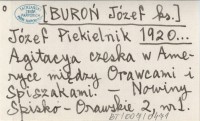 [BUROŃ Józef ks.]
Józef Piekielnik 1920...
Agitacya czeska w Ame-
ryce między Orawcami i
Spiszakami. – Nowiny
Spisko-Orawskie 2, nr 1.